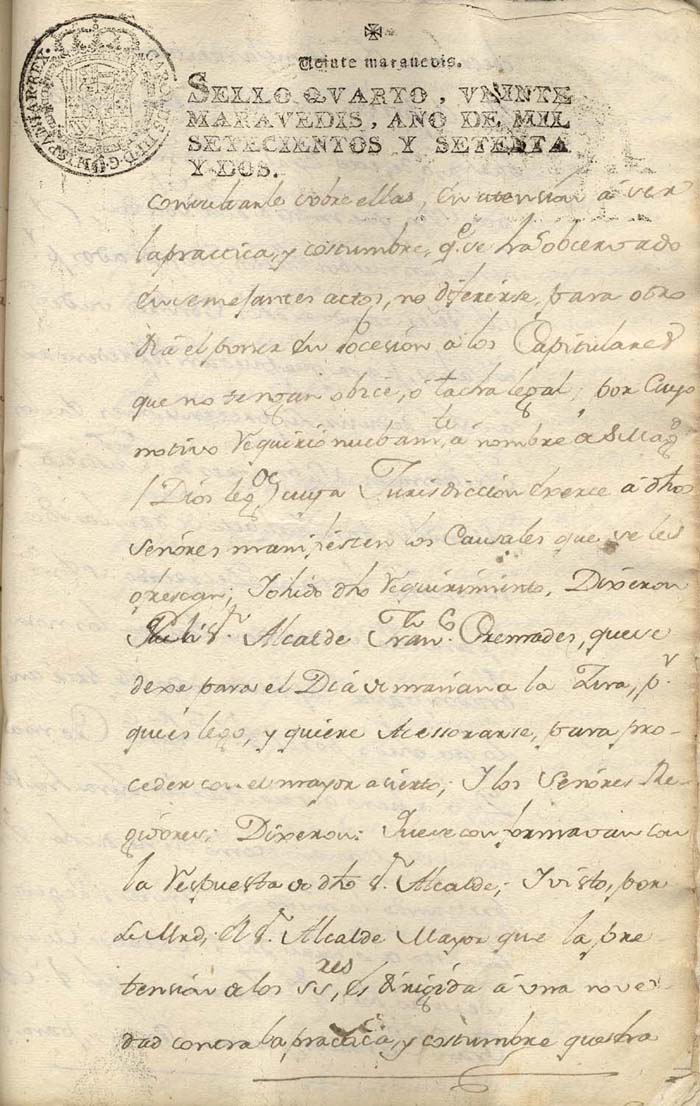 CAROLUS III D G HISPANIAR REX
Veinte maravedis.
SELLO QVARTO, VEINTE
MARAVEDIS, AÑO DE MIL
SETECIENTOS Y SETENTA
Y DOS.
Consultarle sobre ellas, En atension â ser
la practica, y costumbre, q.e se ha observado
En semejantes actos, no diferirse, para otro
Dia el poner En pocesion â los Capitulares
que no tengan obice, ô tacha legal; por Cuyo
motivo Requirió nuebam.te, â nombre de S. Mag.d
(Dios le g.de) Cuya Jurisdiccion Exerce â dhos
señores manifiesten los Causales que se les
ofrescan; Y ohido dho Requirimiento, Dixeron
S.r Alcalde Fran.co Cremades, que se
dexe para el Dia de mañana la Jura, p.r
que és lego, y quiere Acessorarse, para pro-
ceder con el mayor acierto; Y los Señores Re-
gidores; Dixeron; Que se conformavan con
la Respuesta de dho S.r Alcalde; Y visto, por
su Mrd; el S.r Alcalde Mayor que la pre-
tension de los SS.res, és dirigida â una nove-
dad contra la practica, y costumbre que stra